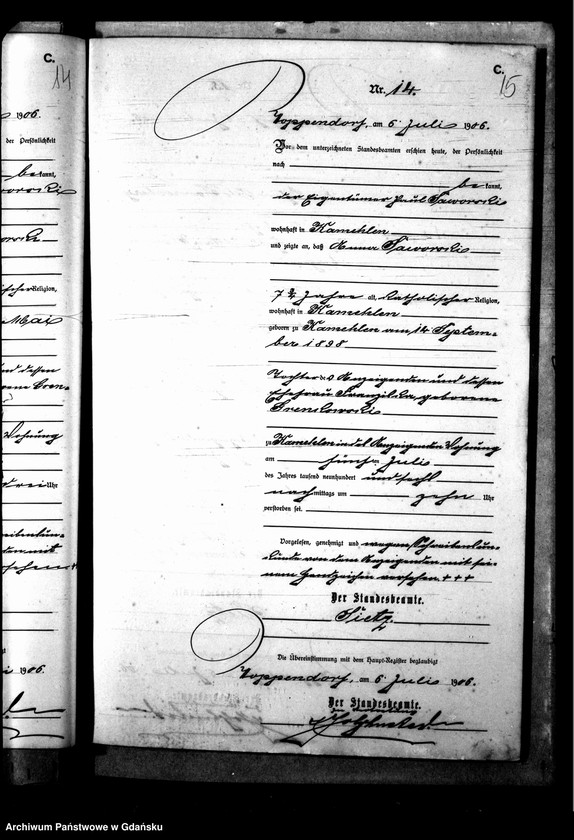 C.
14
1906.
der Persönlichkeit
be kannt,
Religion,
Mai
und dessen
Wohnung
drei Uhr
1906.
C.
15
Nr. 14.
Hoppendorf, am 6. Juli 1906.
Vor dem unterzeichneten Standesbeamten erschien heute, der Persönlichkeit
nach
be kannt,
der Eigentümer Paul Jaworski
wohnhaft in Kamehlen
und zeigte an, daß Anna Jaworski
7 3/4 Jahre alt, katholischer Religion,
wohnhaft in Kamehlen
geboren zu Kamehlen am 14. Septem-
ber 1898
Tochter des Anzeigenden und dessen
Ehefrau Franziska, geborene
zu Kamehlen in des Anzeigenden Wohnung
am fünften Juli
des Jahres tausend neunhundert und sechs
nach mittags um zehn Uhr
verstorben sei.
Vorgelesen, genehmigt und wegen Schreibensun-
kunde von dem Anzeigenden mit sei-
nem Handzeichen versehen. + + +
Der Standesbeamte.
Die Übereinstimmung mit dem Haupt-Register beglaubigt
Hoppendorf, am 6. Juli 1906.
Der Standesbeamte.
Archiwum Państwowe w Gdańsku